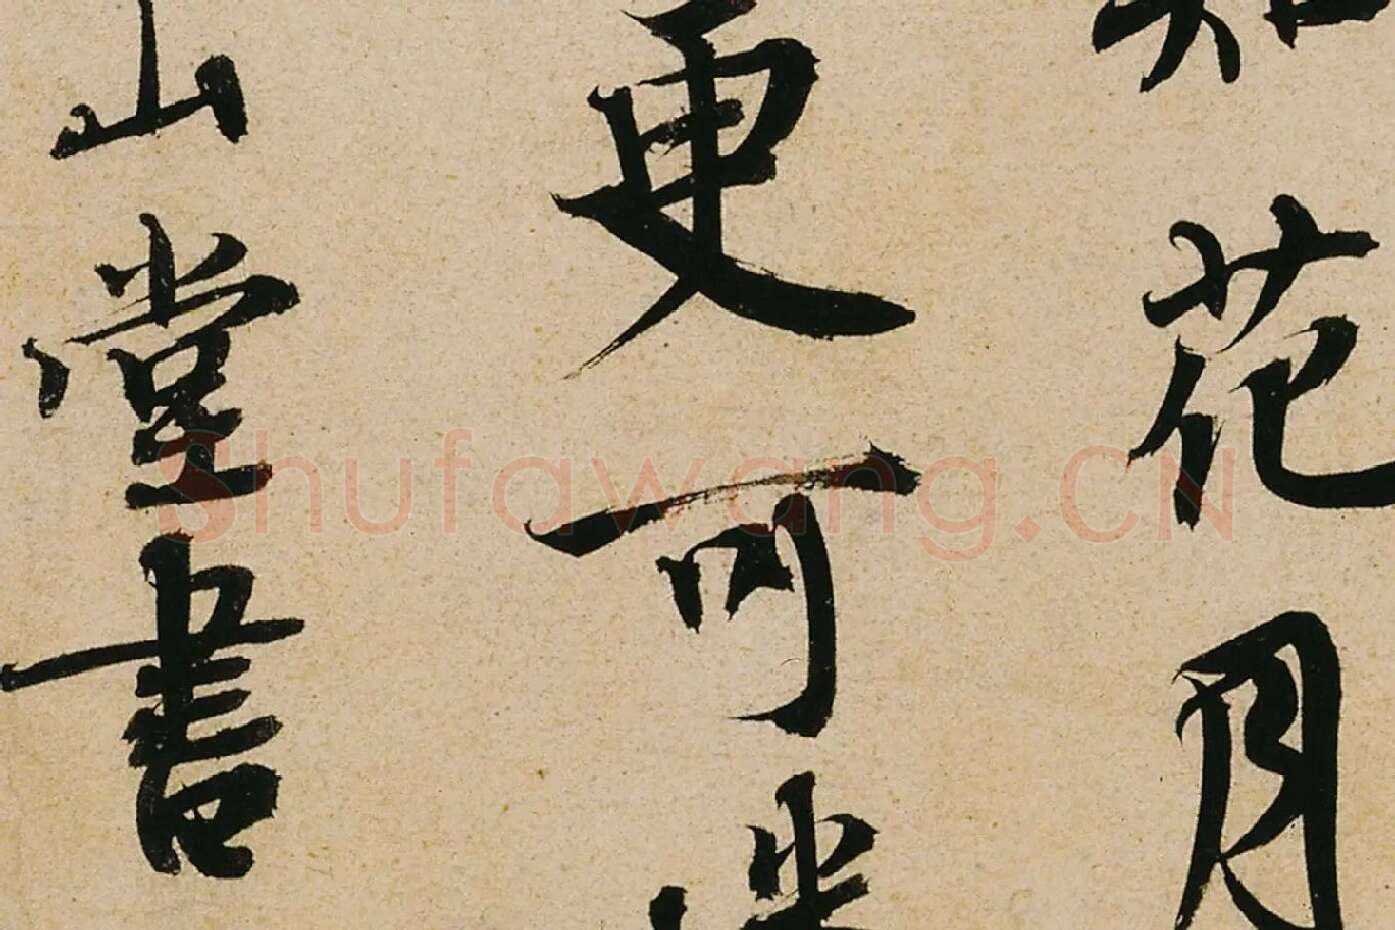 花月
更可
山堂書
Shufawang.CN